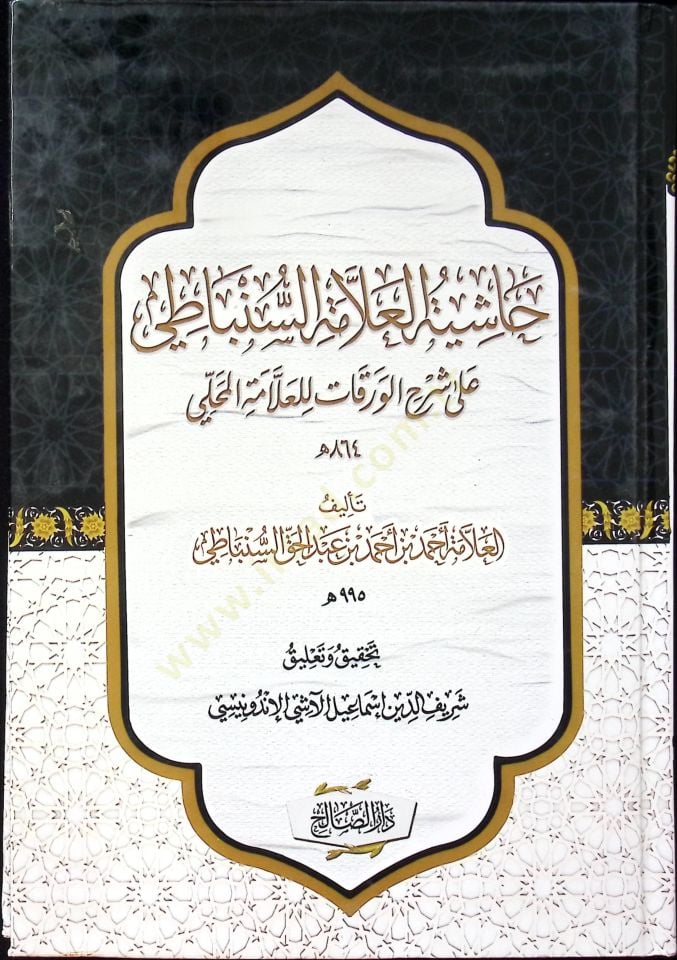 حَاشِيَةُ العَلَّامَةِ السُّنْبَاطِي
عَلَى شَرْحِ الوَرَقَات لِلعَلَّامَةِ المَحَلِّي
٨٦٤هـ
تَأليفُ
العَلَّامَة أَحْمَد بْن أَحْمَد بْن عَبْدِ الحَقِّ السُّنْبَاطِي
٩٩٥هـ
تَحْقِيقُ وَتَعْلِيقُ
شَرِيفِ الدِّين إِسْمَاعِيل الآشِي الإِنْدُونِيسِي
دَارُ الصَّالِح